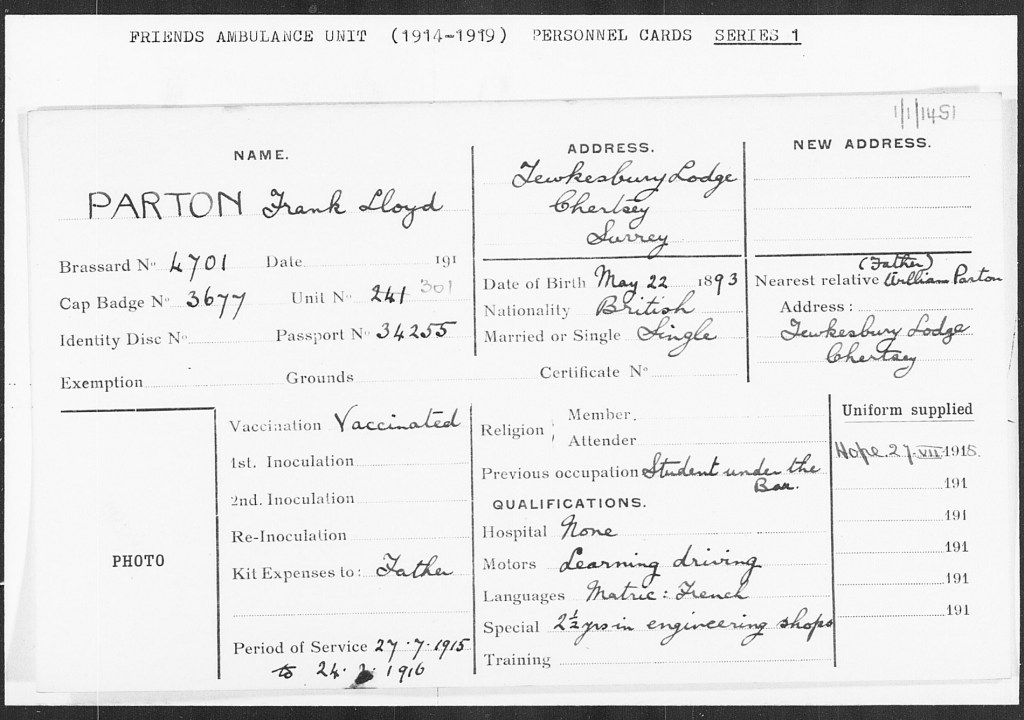 FRIENDS AMBULANCE UNIT (1914-1919) PERSONNEL CARDS SERIES 1
1/1/1451
NAME.
PARTON Frank Lloyd
ADDRESS.
Tewkesbury Lodge
Chertsey
Surrey
NEW ADDRESS.
Brassard No 4701 Date 191
Cap Badge No 3677 Unit No 241 301
Identity Disc No Passport No 34255
Date of Birth May 22 1893
Nationality British
Married or Single Single
(Father)
Nearest relative William Parton
Address:
Tewkesbury Lodge
Chertsey
Exemption Grounds Certificate No
PHOTO
Vaccination Vaccinated
1st. Inoculation
2nd. Inoculation
Re-Inoculation
Kit Expenses to: Father
Period of Service 27.7.1915
to 24. 1916
Religion Member.
Attender
Previous occupation Student under the
Bar.
QUALIFICATIONS.
Hospital None
Motors Learning driving
Languages Matric: French
Special 2½ yrs in engineering shops
Training
Uniform supplied
Hope 27.VII 1915.
191
191
191
191
191